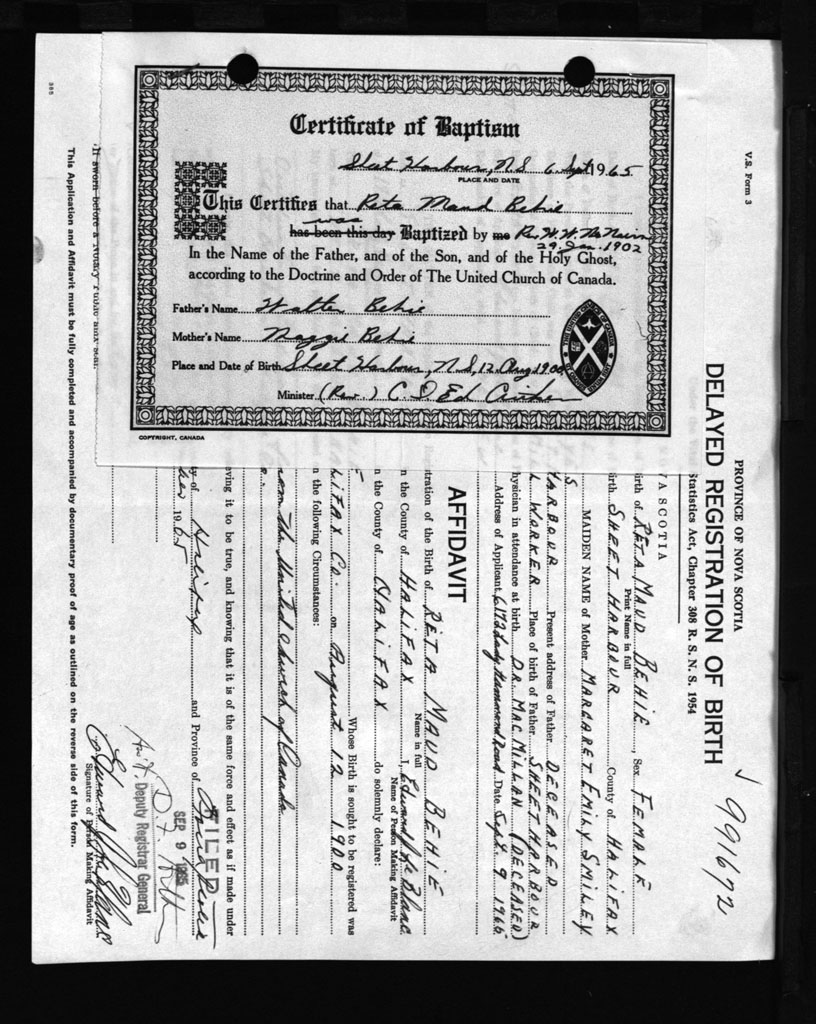 Certificate of Baptism
Sheet Harbour, N.S. 6 Sept 1965
PLACE AND DATE
This Certifies that Reta Maud Behie
was
has been this day Baptized by me Rev. W. W.
29. Jan. 1902
In the Name of the Father, and of the Son, and of the Holy Ghost,
according to the Doctrine and Order of The United Church of Canada.
Father's Name Walter Behie
Mother's Name Maggie Behie
Place and Date of Birth Sheet Harbour, N.S, 12 Aug 1900
Minister (Rev.) C. D. Ed
COPYRIGHT, CANADA
V.S. Form 3
991692
PROVINCE OF NOVA SCOTIA
DELAYED REGISTRATION OF BIRTH
Statistics Act, Chapter 308 R. S. N. S. 1954
VA SCOTIA
irth of RETA MAUD BEHIE, Sex FEMALE
Print Name in full
irth SHEET HARBOUR County of HALIFAX
MAIDEN NAME of Mother MARGARET EMILY SMILEY
HARBOUR Present address of Father DECEASED
L WORKER Place of birth of Father SHEET HARBOUR
hysician in attendance at birth DR. MACMILLAN (DECEASED)
Address of Applicant 6173 Lady Hammond Road Date Sept. 9 1965
AFFIDAVIT
stration of the Birth of RETA MAUD BEHIE
Name in full
n the County of HALIFAX I, Edward Le Blanc
Name of Person Making Affidavit
n the County of HALIFAX do solemnly declare:
Whose Birth is sought to be registered was
LIFAX CO. on August 12 1900
n the following Circumstances:
from the United Church of Canada
eving it to be true, and knowing that it is of the same force and effect as if made under
ty of Halifax and Province of Nova Scotia
1965
FILED
SEP 9 1965
Deputy Registrar General
Signature of Person Making Affidavit
If sworn before a Notary Public affix seal.
This Application and Affidavit must be fully completed and accompanied by documentary proof of age as outlined on the reverse side of this form.
385